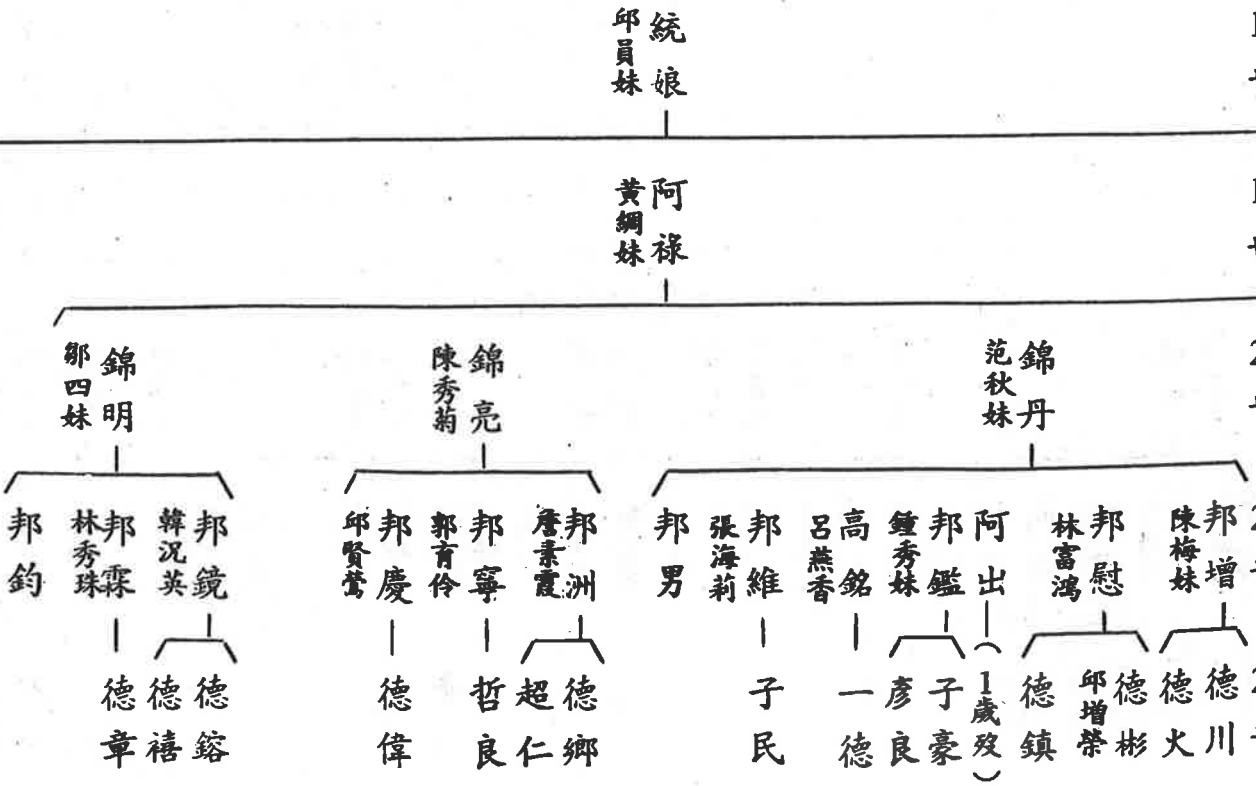 統娘
邱員妹
阿祿
黃綢妹
錦丹
范秋妹
錦亮
陳秀菊
錦明
鄒四妹
邦增
陳梅妹
邦慰
林富鴻
阿出
邦鑑
鍾秀妹
高銘
呂燕香
邦維
張海莉
邦男
邦洲
詹素霞
邦寧
郭育伶
邦慶
邱賢鶯
邦鏡
韓況英
邦霖
林秀珠
邦鈞
德川
德火
德彬
邱增榮
德鎮
(1歲歿)
子豪
彥良
一德
子民
德鄉
超仁
哲良
德偉
德鎔
德禧
德章